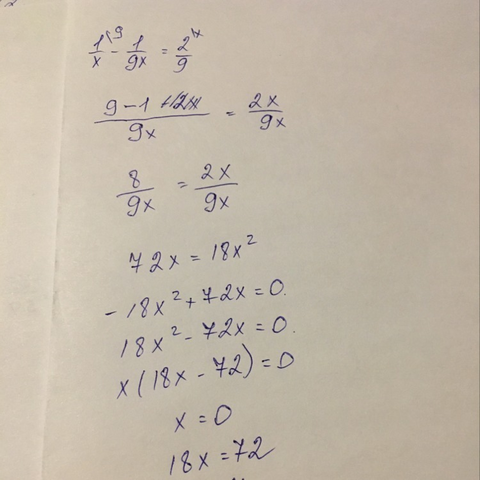 1/x \9 - 1/9x = 2/9 \x
9-1/9x = 2x/9x
8/9x = 2x/9x
72x = 18x²
-18x² + 72x = 0.
18x² - 72x = 0.
x(18x - 72) = 0
x = 0
18x = 72